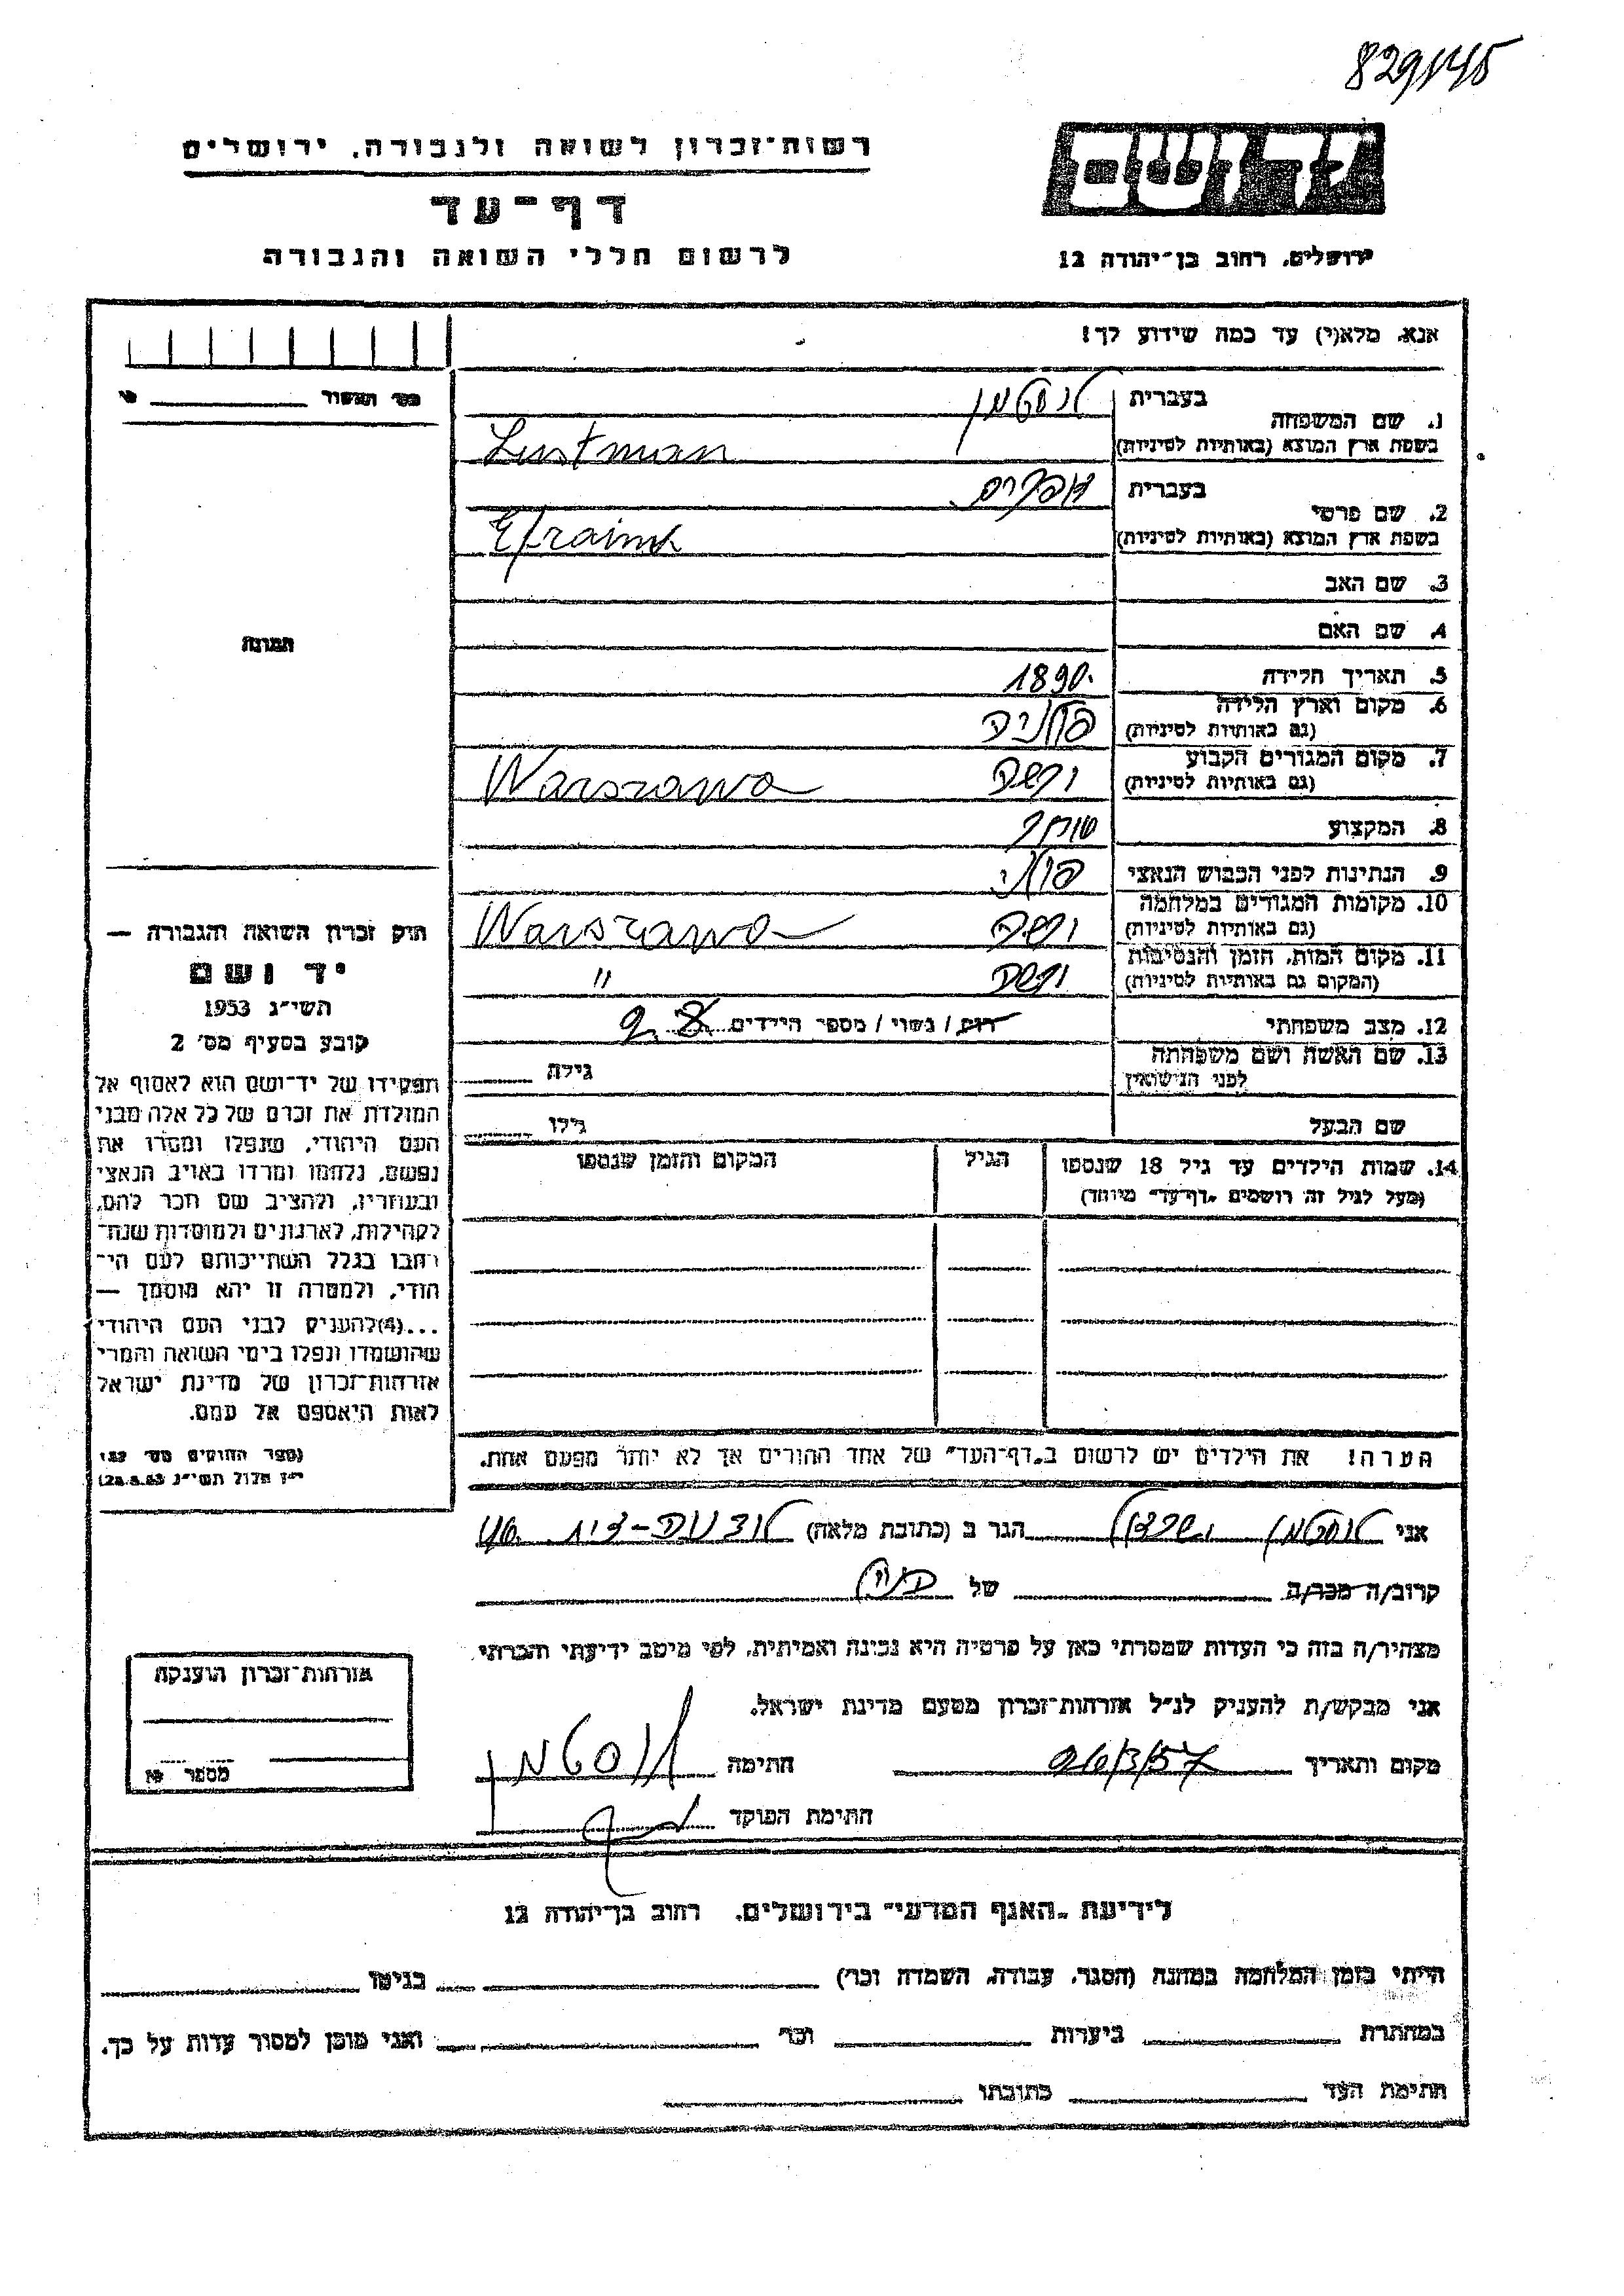 829/145
רשות־זכרון לשואה ולגבורה, ירושלים
דף־עד
לרשום חללי השואה והגבורה
יד ושם
ירושלים, רחוב בן־יהודה 12
אנא, מלא(י) עד כמה שידוע לך!
1. שם המשפחה
בעברית לוסטמן
בשפת ארץ המוצא (באותיות לטיניות) Lustman
2. שם פרטי
בעברית אפרים
בשפת ארץ המוצא (באותיות לטיניות) Efraim
3. שם האב
4. שם האם
5. תאריך הלידה 1890
6. מקום וארץ הלידה
(גם באותיות לטיניות) פולניה
7. מקום המגורים הקבוע
(גם באותיות לטיניות) ורשה Warszawa
8. המקצוע סוחר
9. הנתינות לפני הכבוש הנאצי פולני
10. מקומות המגורים במלחמה
(גם באותיות לטיניות) ורשה Warszawa
11. מקום המות, הזמן והנסיבות
(המקום גם באותיות לטיניות) ורשה "
12. מצב משפחתי רוק / נשוי / מספר הילדים
13. שם האשה ושם משפחתה
לפני הנישואין
גילה
שם הבעל
גילו
14. שמות הילדים עד גיל 18 שנספו
(מעל לגיל זה רושמים "דף־עד" מיוחד)
הגיל
המקום והזמן שנספו
הערה! את הילדים יש לרשום ב"דף־העד" של אחד ההורים אך לא יותר מפעם אחת.
תמונה
חוק זכרון השואה והגבורה —
יד ושם
תשי"ג 1953
קובע בסעיף מס' 2
תפקידו של יד־ושם הוא לאסוף אל
המולדת את זכרם של כל אלה מבני
העם היהודי, שנפלו ומסרו את
נפשם, נלחמו ומרדו באויב הנאצי
ובעוזריו, ולהציב שם וזכר להם,
לקהילות, לארגונים ולמוסדות שנח־
רבו בגלל השתייכותם לעם הי־
הודי, ולמטרה זו יהא מוסמך —
...(4)להעניק לבני העם היהודי
שהושמדו ונפלו בימי השואה והמרי
אזרחות־זכרון של מדינת ישראל
לאות היאספם אל עמם.
(ספר החוקים מס' 132
י"ז אלול תשי"ג 28.8.53)
אני לוסטמן הגר ב (כתובת מלאה)
קרוב/ה מכר/ה של
מצהיר/ה בזה כי העדות שמסרתי כאן על פרטיה היא נכונה ואמיתית, לפי מיטב ידיעתי והכרתי
אני מבקש/ת להעניק לנ"ל אזרחות־זכרון מטעם מדינת ישראל.
מקום ותאריך 26/3/57 חתימה לוסטמן
חתימת הפוקד
אזרחות־זכרון הוענקה
מספר
לידיעת "האגף המדעי" בירושלים, רחוב בן־יהודה 12
הייתי בזמן המלחמה במחנה (הסגר, עבודה, השמדה וכו') בגיטו
במחתרת ביערות וכו' ואני מוכן למסור עדות על כך.
חתימת העד כתובתו